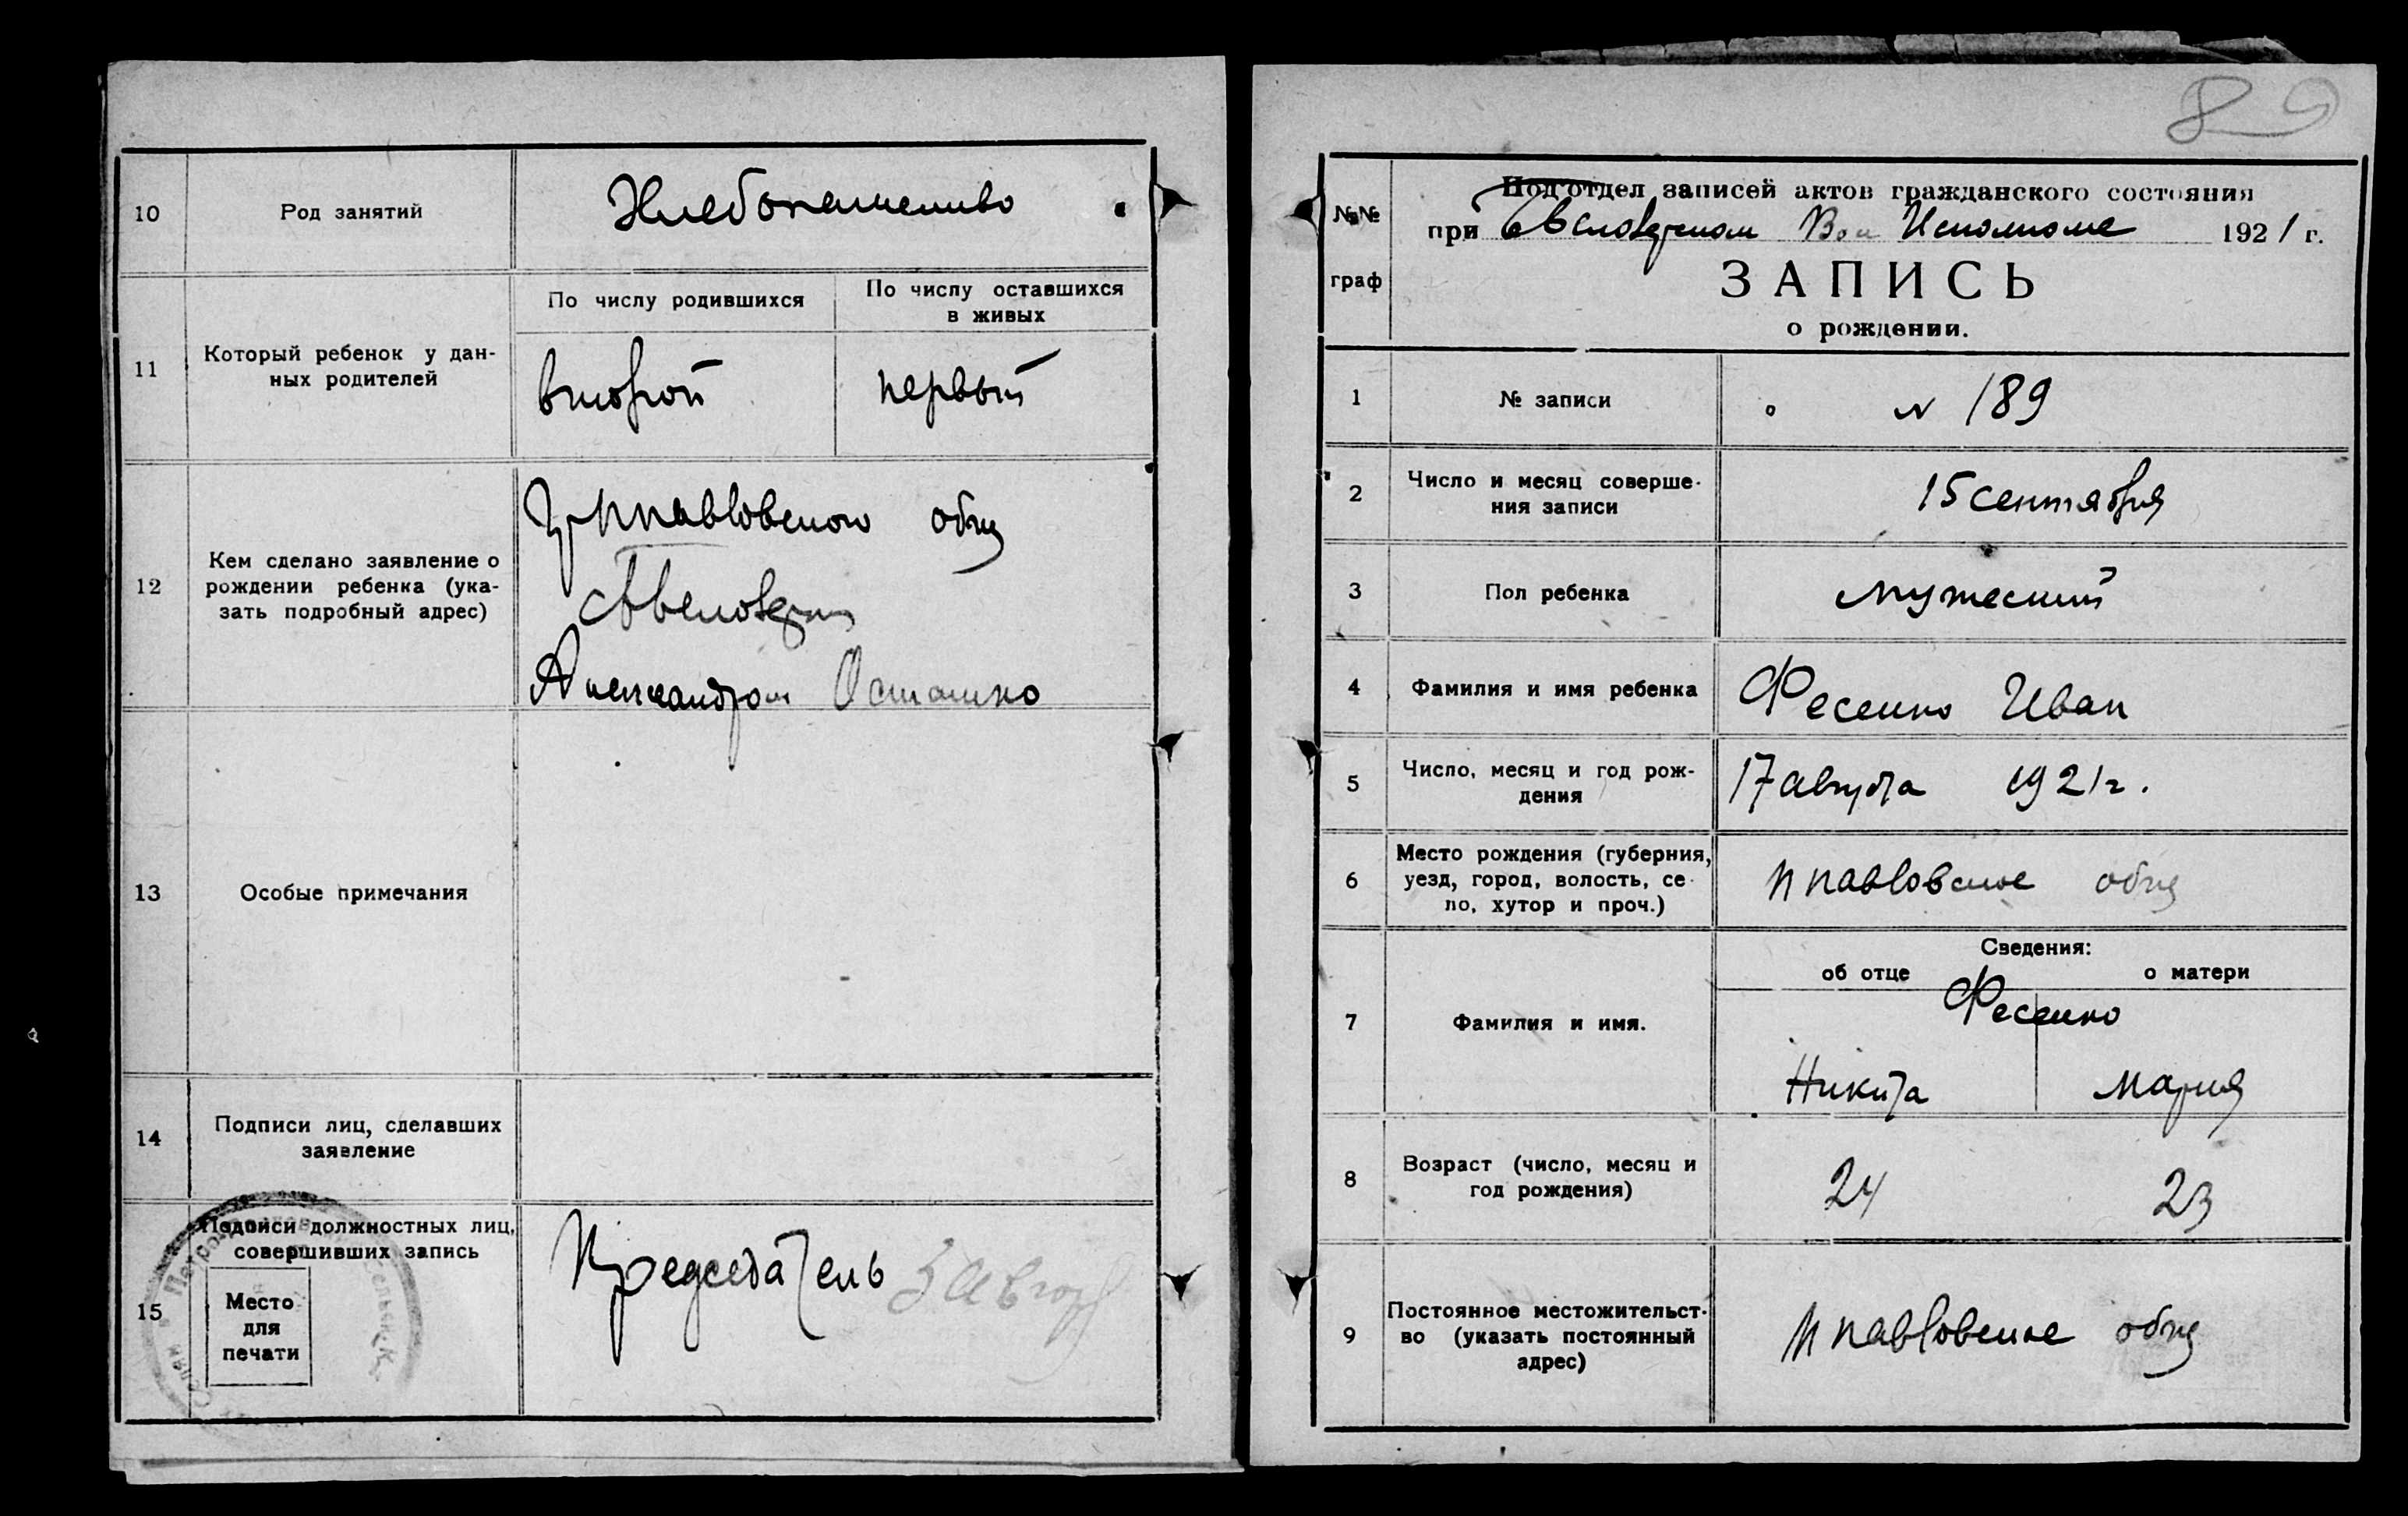 10
Род занятий
Хлебопашество
11
Который ребенок у дан-
ных родителей
По числу родившихся
По числу оставшихся
в живых
второй
первый
12
Кем сделано заявление о
рождении ребенка (ука-
зать подробный адрес)
Гр Ппавловского общ
Александром Осташко
13
Особые примечания
14
Подписи лиц, сделавших
заявление
15
Подписи должностных лиц,
совершивших запись
Место
для
печати
Председатель
89
№№
граф
Под'отдел записей актов гражданского состояния
при Вол Исполкоме 1921 г.
ЗАПИСЬ
о рождении.
1
№ записи
N 189
2
Число и месяц соверше-
ния записи
15 сентября
3
Пол ребенка
мужеский
4
Фамилия и имя ребенка
Фесенко Иван
5
Число, месяц и год рож-
дения
17 августа 1921 г.
6
Место рождения (губерния,
уезд, город, волость, се-
ло, хутор и проч.)
Ппавловское общ
7
Фамилия и имя.
Сведения:
об отце
о матери
Фесенко
Никита
Мария
8
Возраст (число, месяц и
год рождения)
24
23
9
Постоянное местожительст-
во (указать постоянный
адрес)
Ппавловское общ